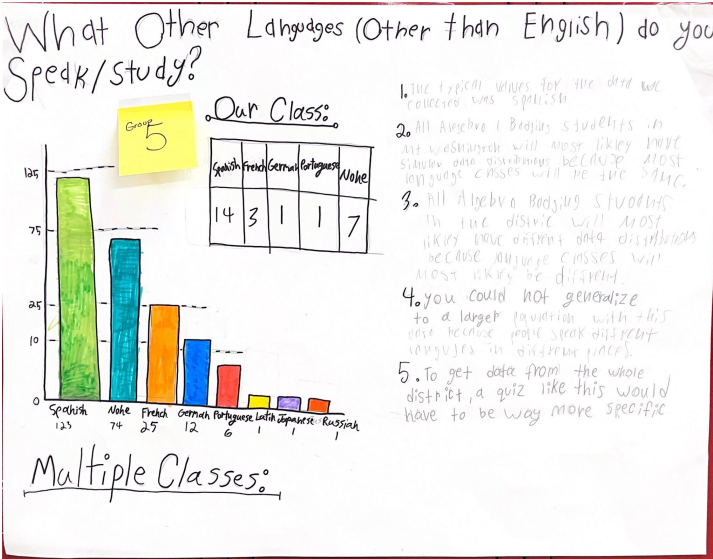 What Other Languages (Other than English) do you
Speak/Study?
Group
5
Our Class:
Spanish French German Portuguese None
14 3 1 1 7
125
75
25
10
0
Spanish None French German Portuguese Latin Japanese Russian
123 74 25 12 6 1 1 1
Multiple Classes:
1. The typical values for the data we
collected was spanish
2. All Algebra 1 Bodjing students in
will most likley have
because most
language will be the same.
3. All Algebra Bodjing students
in the distric will most
likley have different data distributions
because language classes will
most likley be different.
4. you could not generalize
to a larger with this
because people speak different
in different places.
5. To get data from the whole
district, a quiz like this would
have to be way more specific